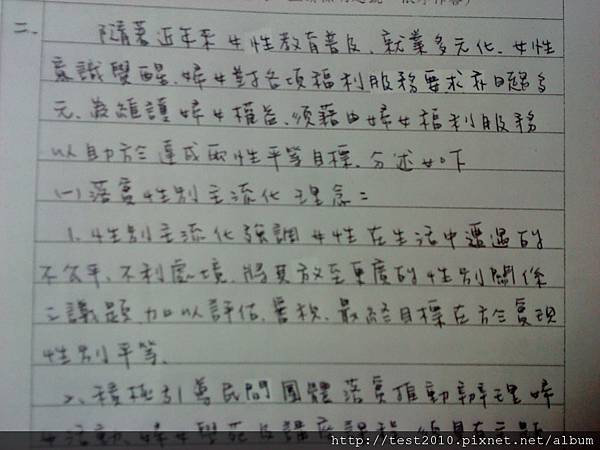 二、隨著近年來女性教育普及、就業多元化、女性
意識覺醒、婦女對於各項福利服務要求亦日趨多
元、為維護婦女權益、須藉由婦女福利服務
以助於達成兩性平等目標、分述如下
(一)落實性別主流化理念：
1. 性別主流化強調女性在生活中遭遇的
不公平、不利處境、將其放至更廣的性別關係
之議題加以評估、審視、最終目標在於實現
性別平等、
2、積極引導民間團體落實推動辦理婦
女活動、婦女學苑及講座課程
http://test2010.pixnet.net/album